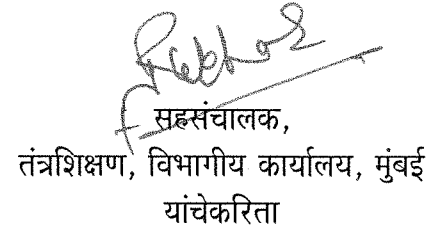 सहसंचालक,
तंत्रशिक्षण, विभागीय कार्यालय, मुंबई
यांचेकरिता